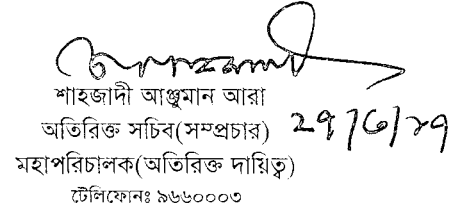 শাহজাদী আঞ্জুমান আরা
অতিরিক্ত সচিব(সম্প্রচার)
মহাপরিচালক(অতিরিক্ত দায়িত্ব)
টেলিফোনঃ ৯৬৬০০০৩